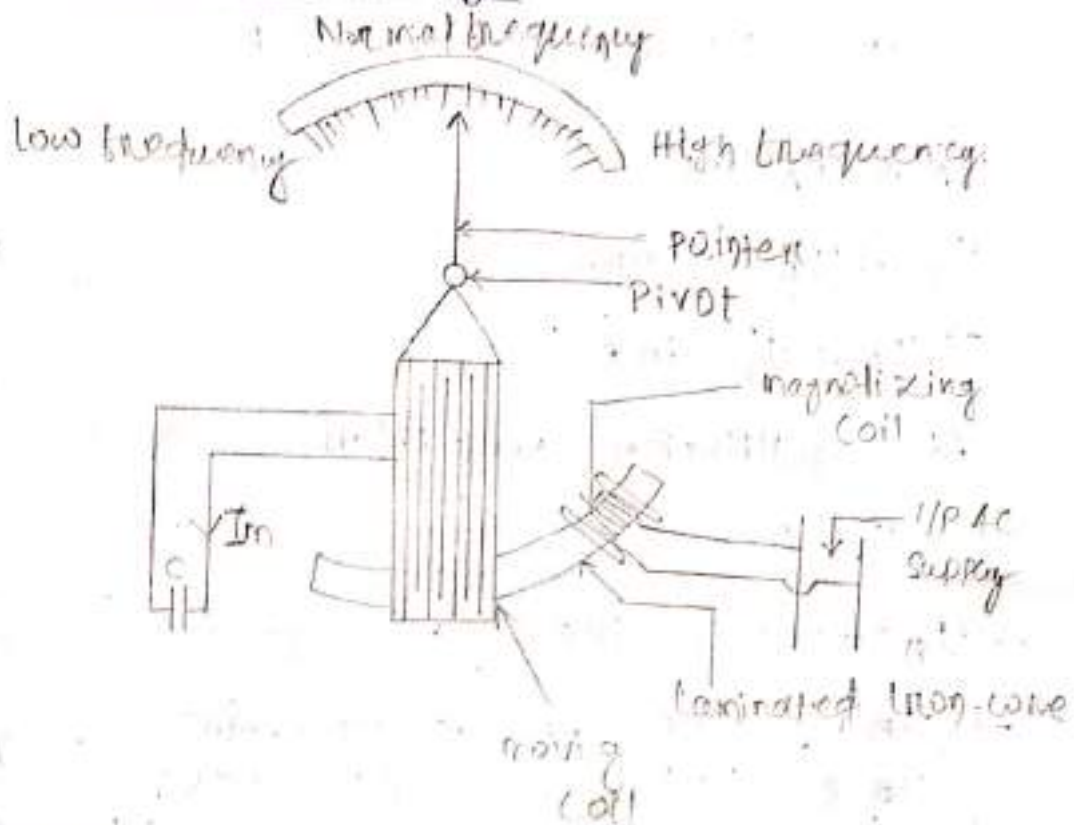 Normal frequency
Low frequency
High frequency
Pointer
Pivot
magnetizing
Coil
I/P AC
Supply
Im
C
Laminated Iron-core
moving
Coil